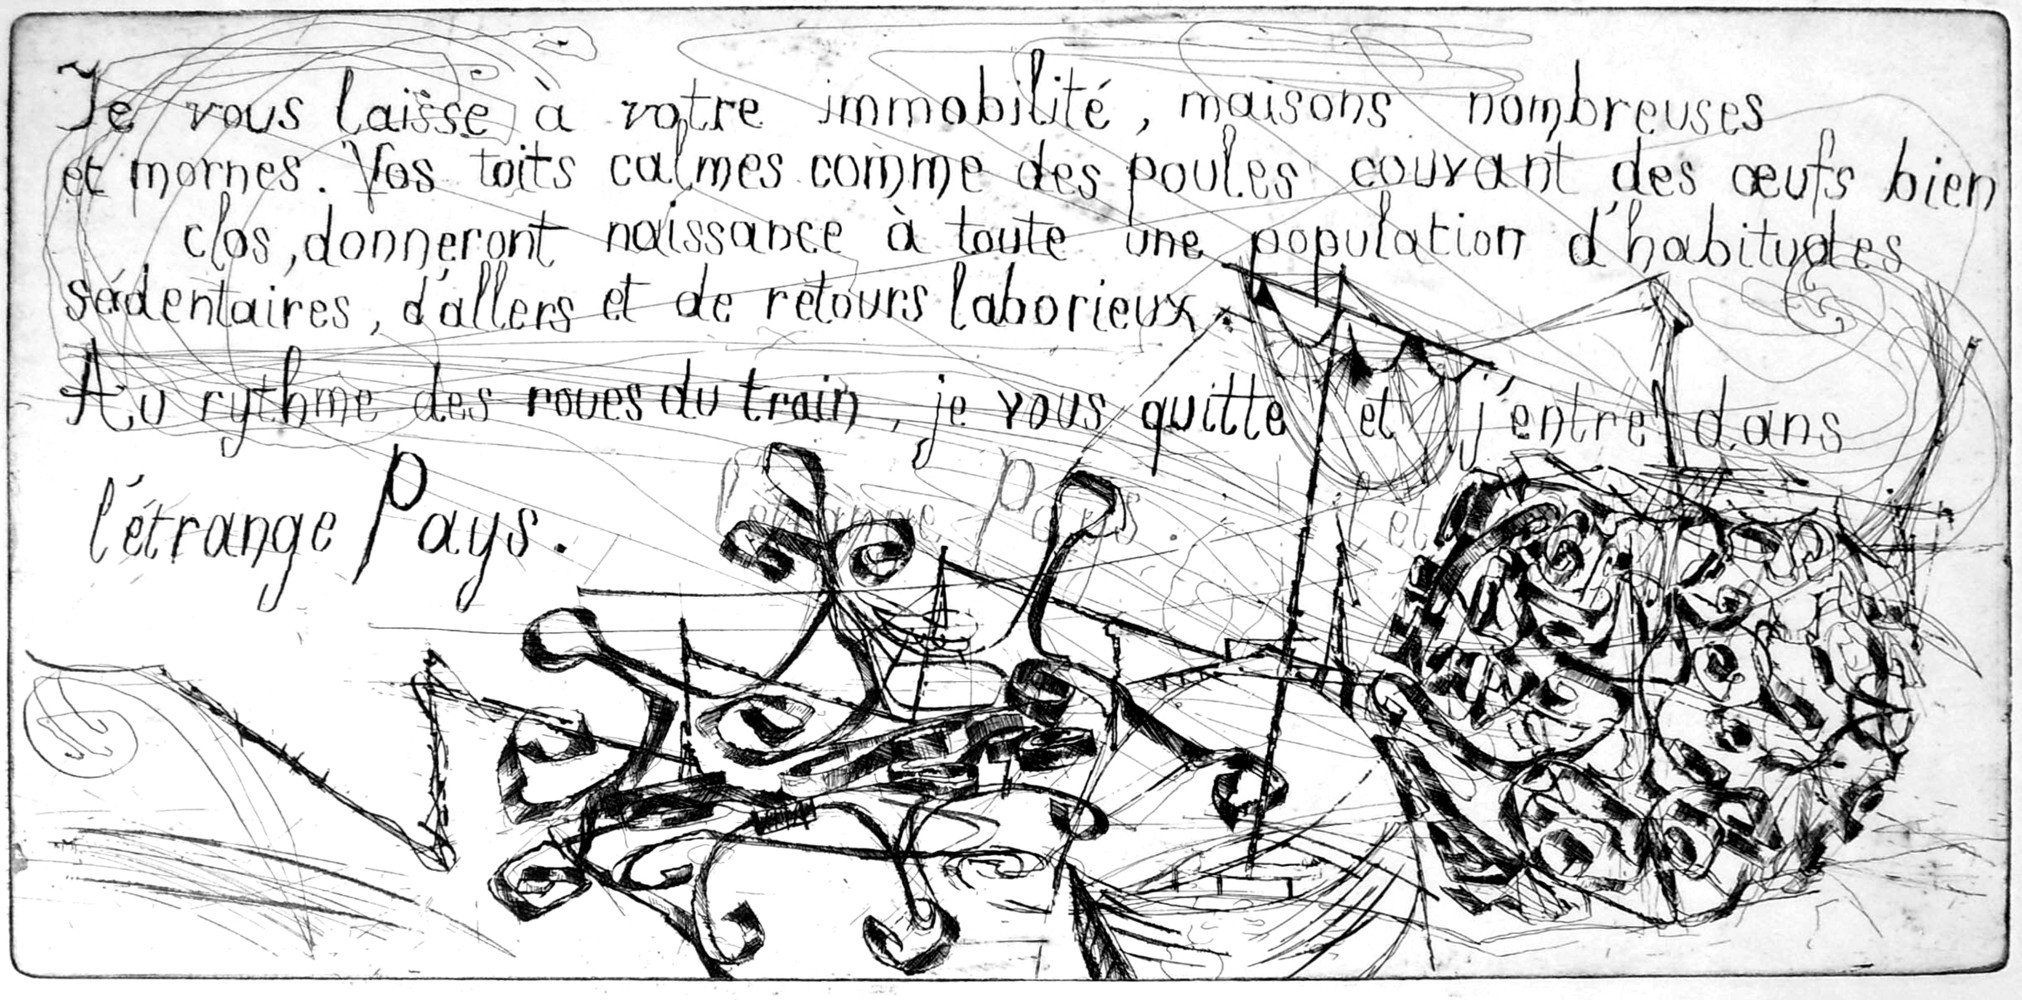 Je vous laisse à votre immobilité, maisons nombreuses
et mornes. Vos toits calmes comme des poules couvant des œufs bien
clos, donneront naissance à toute une population d'habitudes
sédentaires, d'allers et de retours laborieux.
Au rythme des roues du train, je vous quitte et j'entre dans
l'étrange Pays.
l'étrange Pays et